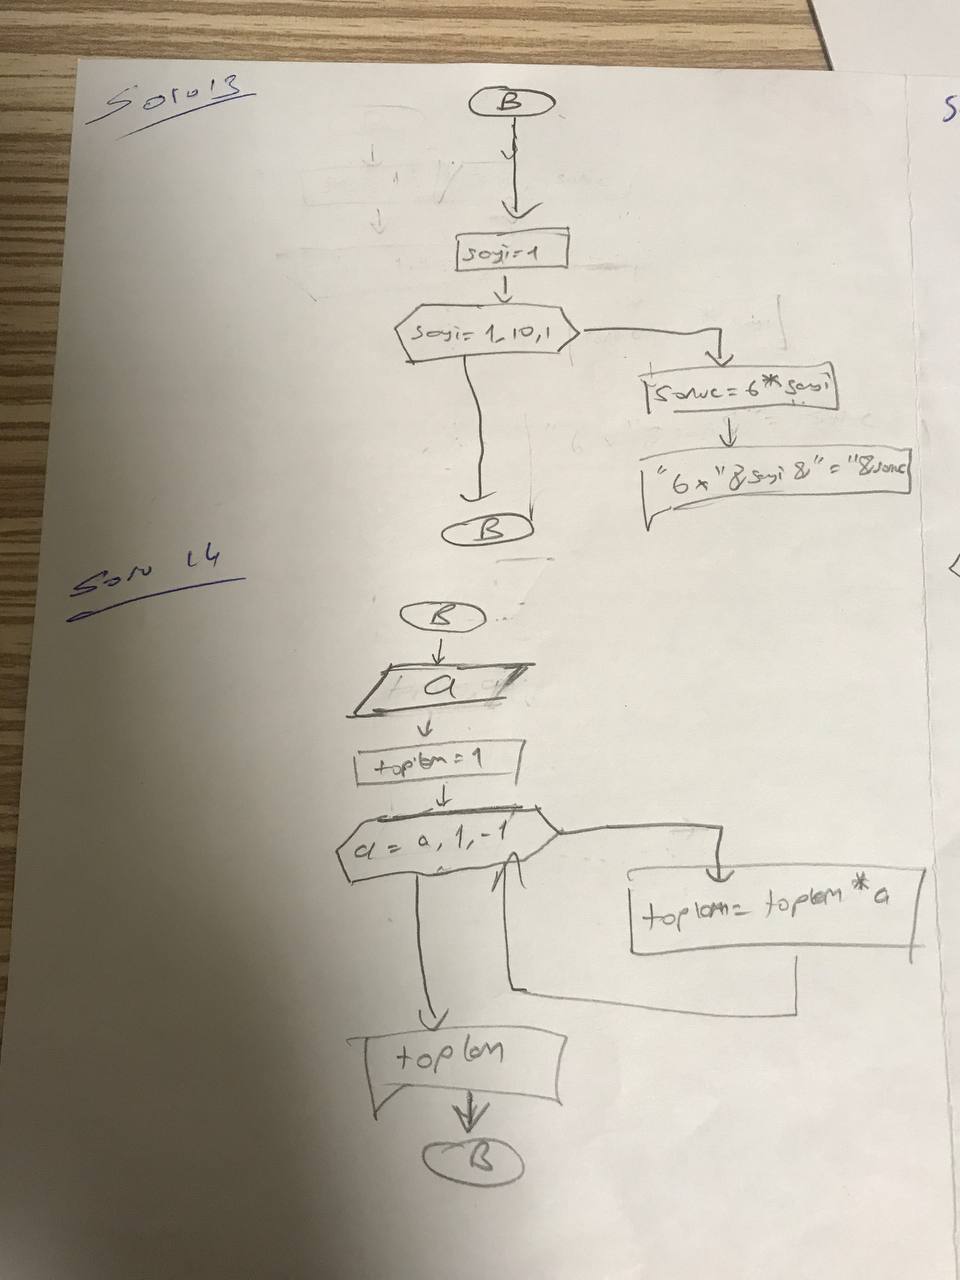 Soru 13
B
sayi=1
sayi= 1,10,1
sonuc=6*sayi
"6x"&sayi&"="&sonuc
B
Soru 14
B
a
toplam=1
a = a, 1, -1
toplam= toplam*a
toplam
B